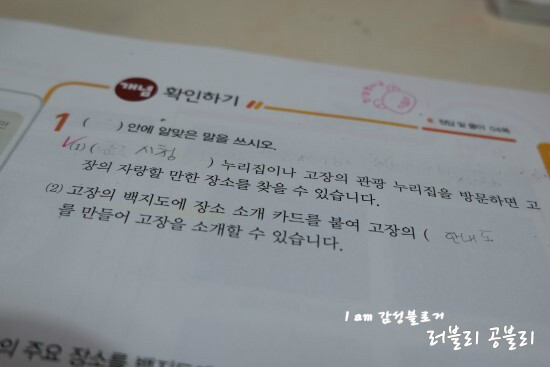 개념 확인하기
정답 및 풀이 04쪽
1 ( ) 안에 알맞은 말을 쓰시오.
(1) ( 시청 ) 누리집이나 고장의 관광 누리집을 방문하면 고
장의 자랑할 만한 장소를 찾을 수 있습니다.
(2) 고장의 백지도에 장소 소개 카드를 붙여 고장의 ( 안내도
를 만들어 고장을 소개할 수 있습니다.
I am 감성블로거
러블리 공블리
의 주요 장소를 백지도